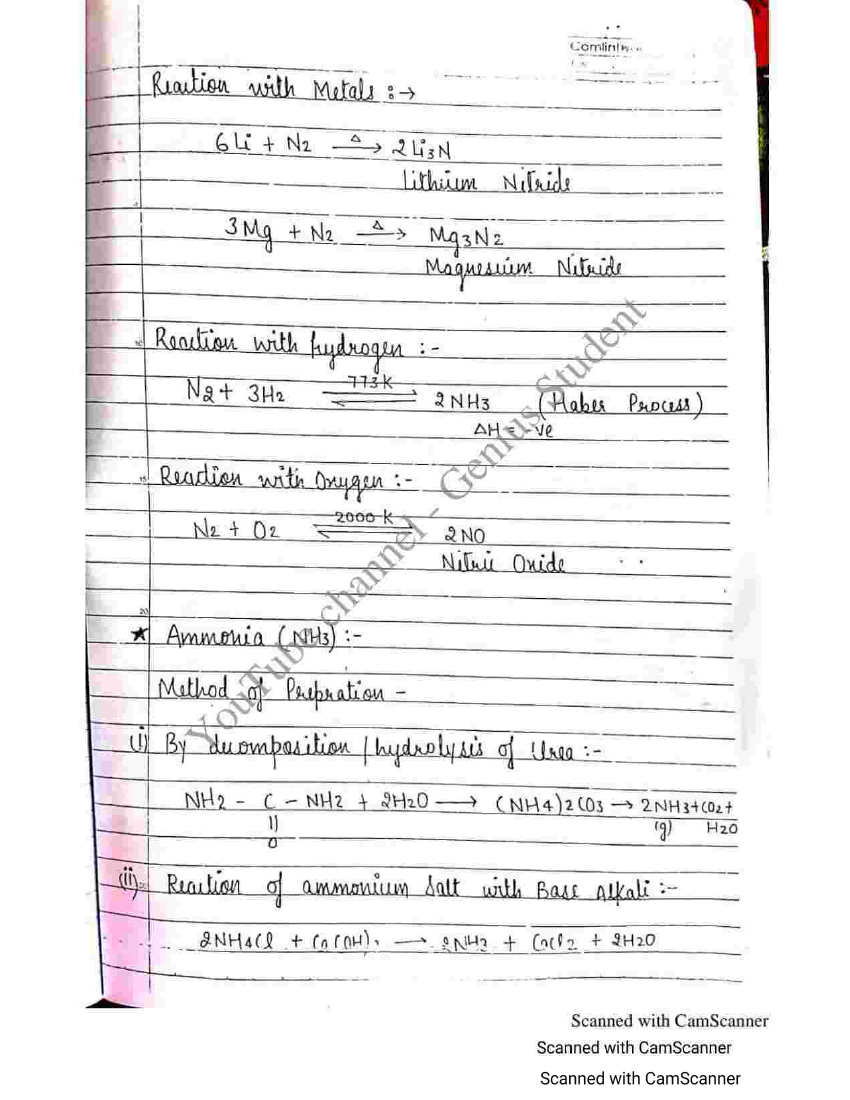 Comlin
Reaction with Metals :→
6Li + N2 —Δ→ 2Li3N
Lithium Nitride
3Mg + N2 —Δ→ Mg3N2
Magnesium Nitride
Reaction with hydrogen :-
N2 + 3H2 ⇌ 773K 2NH3 (Haber Process)
ΔH = -ve
Reaction with Oxygen :-
N2 + O2 ⇌ 2000 K 2NO
Nitric Oxide
20
★ Ammonia (NH3) :-
Method of Prepration -
(i) By decomposition / hydrolysis of Urea :-
NH2 - C - NH2 + 2H2O → (NH4)2CO3 → 2NH3+CO2+
|| (g) H2O
O
(ii) Reaction of ammonium Salt with Base Alkali :-
2NH4Cl + Ca(OH)2 → 2NH3 + CaCl2 + 2H2O
YouTube channel - Genius Student
Scanned with CamScanner
Scanned with CamScanner
Scanned with CamScanner